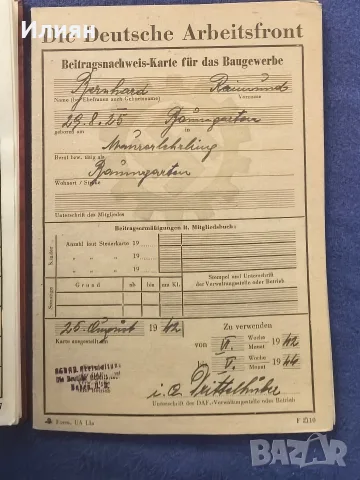 Илиан
Die Deutsche Arbeitsfront
Beitragsnachweis-Karte für das Baugewerbe
Bernhard Raimund
Name (bei Ehefrauen auch Geburtsname) Vorname
29.8.25 Baumgarten
geboren am in
Maurerlehrling
Beruf bzw. tätig als
Baumgarten
Wohnort / Straße
Unterschrift des Mitgliedes
Beitragsermäßigungen lt. Mitgliedsbuch:
Kinder
Anzahl laut Steuerkarte 19
" " " 19
" " " 19
Stempel und Unterschrift der Verwaltungsstelle oder Betrieb
Sonstige
Grund ab bis zu Kl.
25. August 1942
Karte ausgestellt am
Zu verwenden
von VI. Woche Monat 1942
bis V. Woche Monat 1944
Die Deutsche
i.A.
Unterschrift des DAF.-Verwaltungsstelle oder Betrieb
Form. UA 13a
F 2110
BAZAR.bg